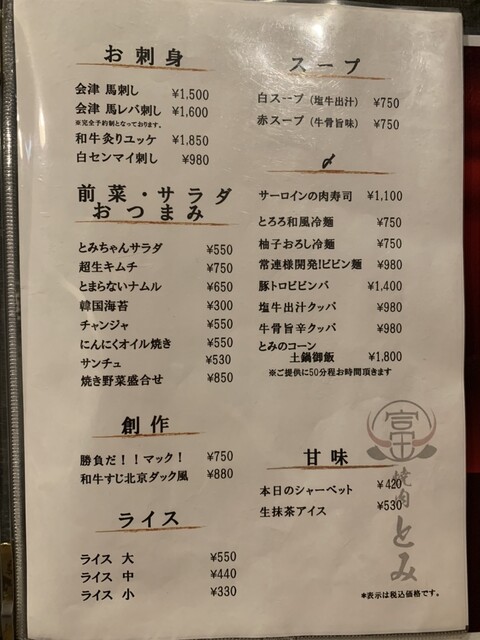 お刺身
会津 馬刺し ¥1,500
会津 馬レバ刺し ¥1,600
※完全予約制となっております。
和牛炙りユッケ ¥1,850
白センマイ刺し ¥980
前菜・サラダ
おつまみ
とみちゃんサラダ ¥550
超生キムチ ¥750
とまらないナムル ¥650
韓国海苔 ¥300
チャンジャ ¥550
にんにくオイル焼き ¥550
サンチュ ¥530
焼き野菜盛合せ ¥850
創作
勝負だ！！マック！ ¥750
和牛すじ北京ダック風 ¥880
ライス
ライス 大 ¥550
ライス 中 ¥440
ライス 小 ¥330
スープ
白スープ（塩牛出汁） ¥750
赤スープ（牛骨旨味） ¥750
〆
サーロインの肉寿司 ¥1,100
とろろ和風冷麺 ¥750
柚子おろし冷麺 ¥750
常連様開発!ビビン麺 ¥980
豚トロビビンバ ¥1,400
塩牛出汁クッパ ¥980
牛骨旨辛クッパ ¥980
とみのコーン
土鍋御飯 ¥1,800
※ご提供に50分程お時間頂きます
甘味
本日のシャーベット ¥420
生抹茶アイス ¥530
富
焼肉とみ
*表示は税込価格です。